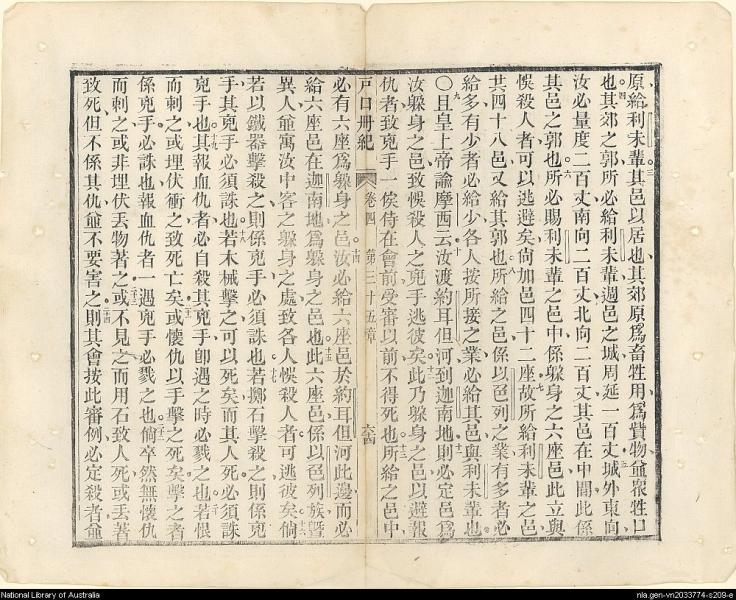 原給利未輩其邑以居也其郊原爲畜牲用爲貲物並衆牲口
也其郊之郭所必給利未輩週邑之城周延一百丈城外東向
汝必量度二百丈南向二百丈北向二百丈其邑在中間此係
其邑之郭也所必賜利未輩之邑中係躲身之六座邑此立與
悞殺人者可以逃避矣尙加邑四十二座故所給利未輩之邑
共四十八邑又給其郭也所給之邑係以色列之業有多者必
給多有少者必給少各人按所接之業必給其邑與利未輩也
○且皇上帝諭摩西云汝渡約耳但河到迦南地則必定邑爲
汝躲身之邑致悞殺人之兇手逃彼矣此乃躲身之邑以避報
仇者致兇手一俟侍在會前受審以前不得死也所給之邑中
戸口冊紀 卷四 第三十五章 六古
必有六座爲躲身之邑汝必給六座邑於約耳但河此邊而必
給六座邑在迦南地爲躲身之邑也此六座邑係以色列族曁
異人並寓汝中客之躲身之處致各人悞殺人者可逃彼矣倘
若以鐵器擊殺之則係兇手必須誅也若擲石擊殺之則係兇
手其兇手必須誅也若木械擊之可以死矣而其人死必須誅
兇手也其報血仇者必自殺其兇手卽遇之時必戮之也若恨
而刺之或埋伏衝之致死亡矣或懷仇以手擊之死矣擊之者
係兇手必誅也報血仇者一遇兇手必戮之也倘卒然無懷仇
而刺之或非埋伏丢物著之或不見之而用石致人死或丢著
致死但不係其仇並不要害之則其會按此審例必定殺者並
National Library of Australia
nla.gen-vn2033774-s209-e